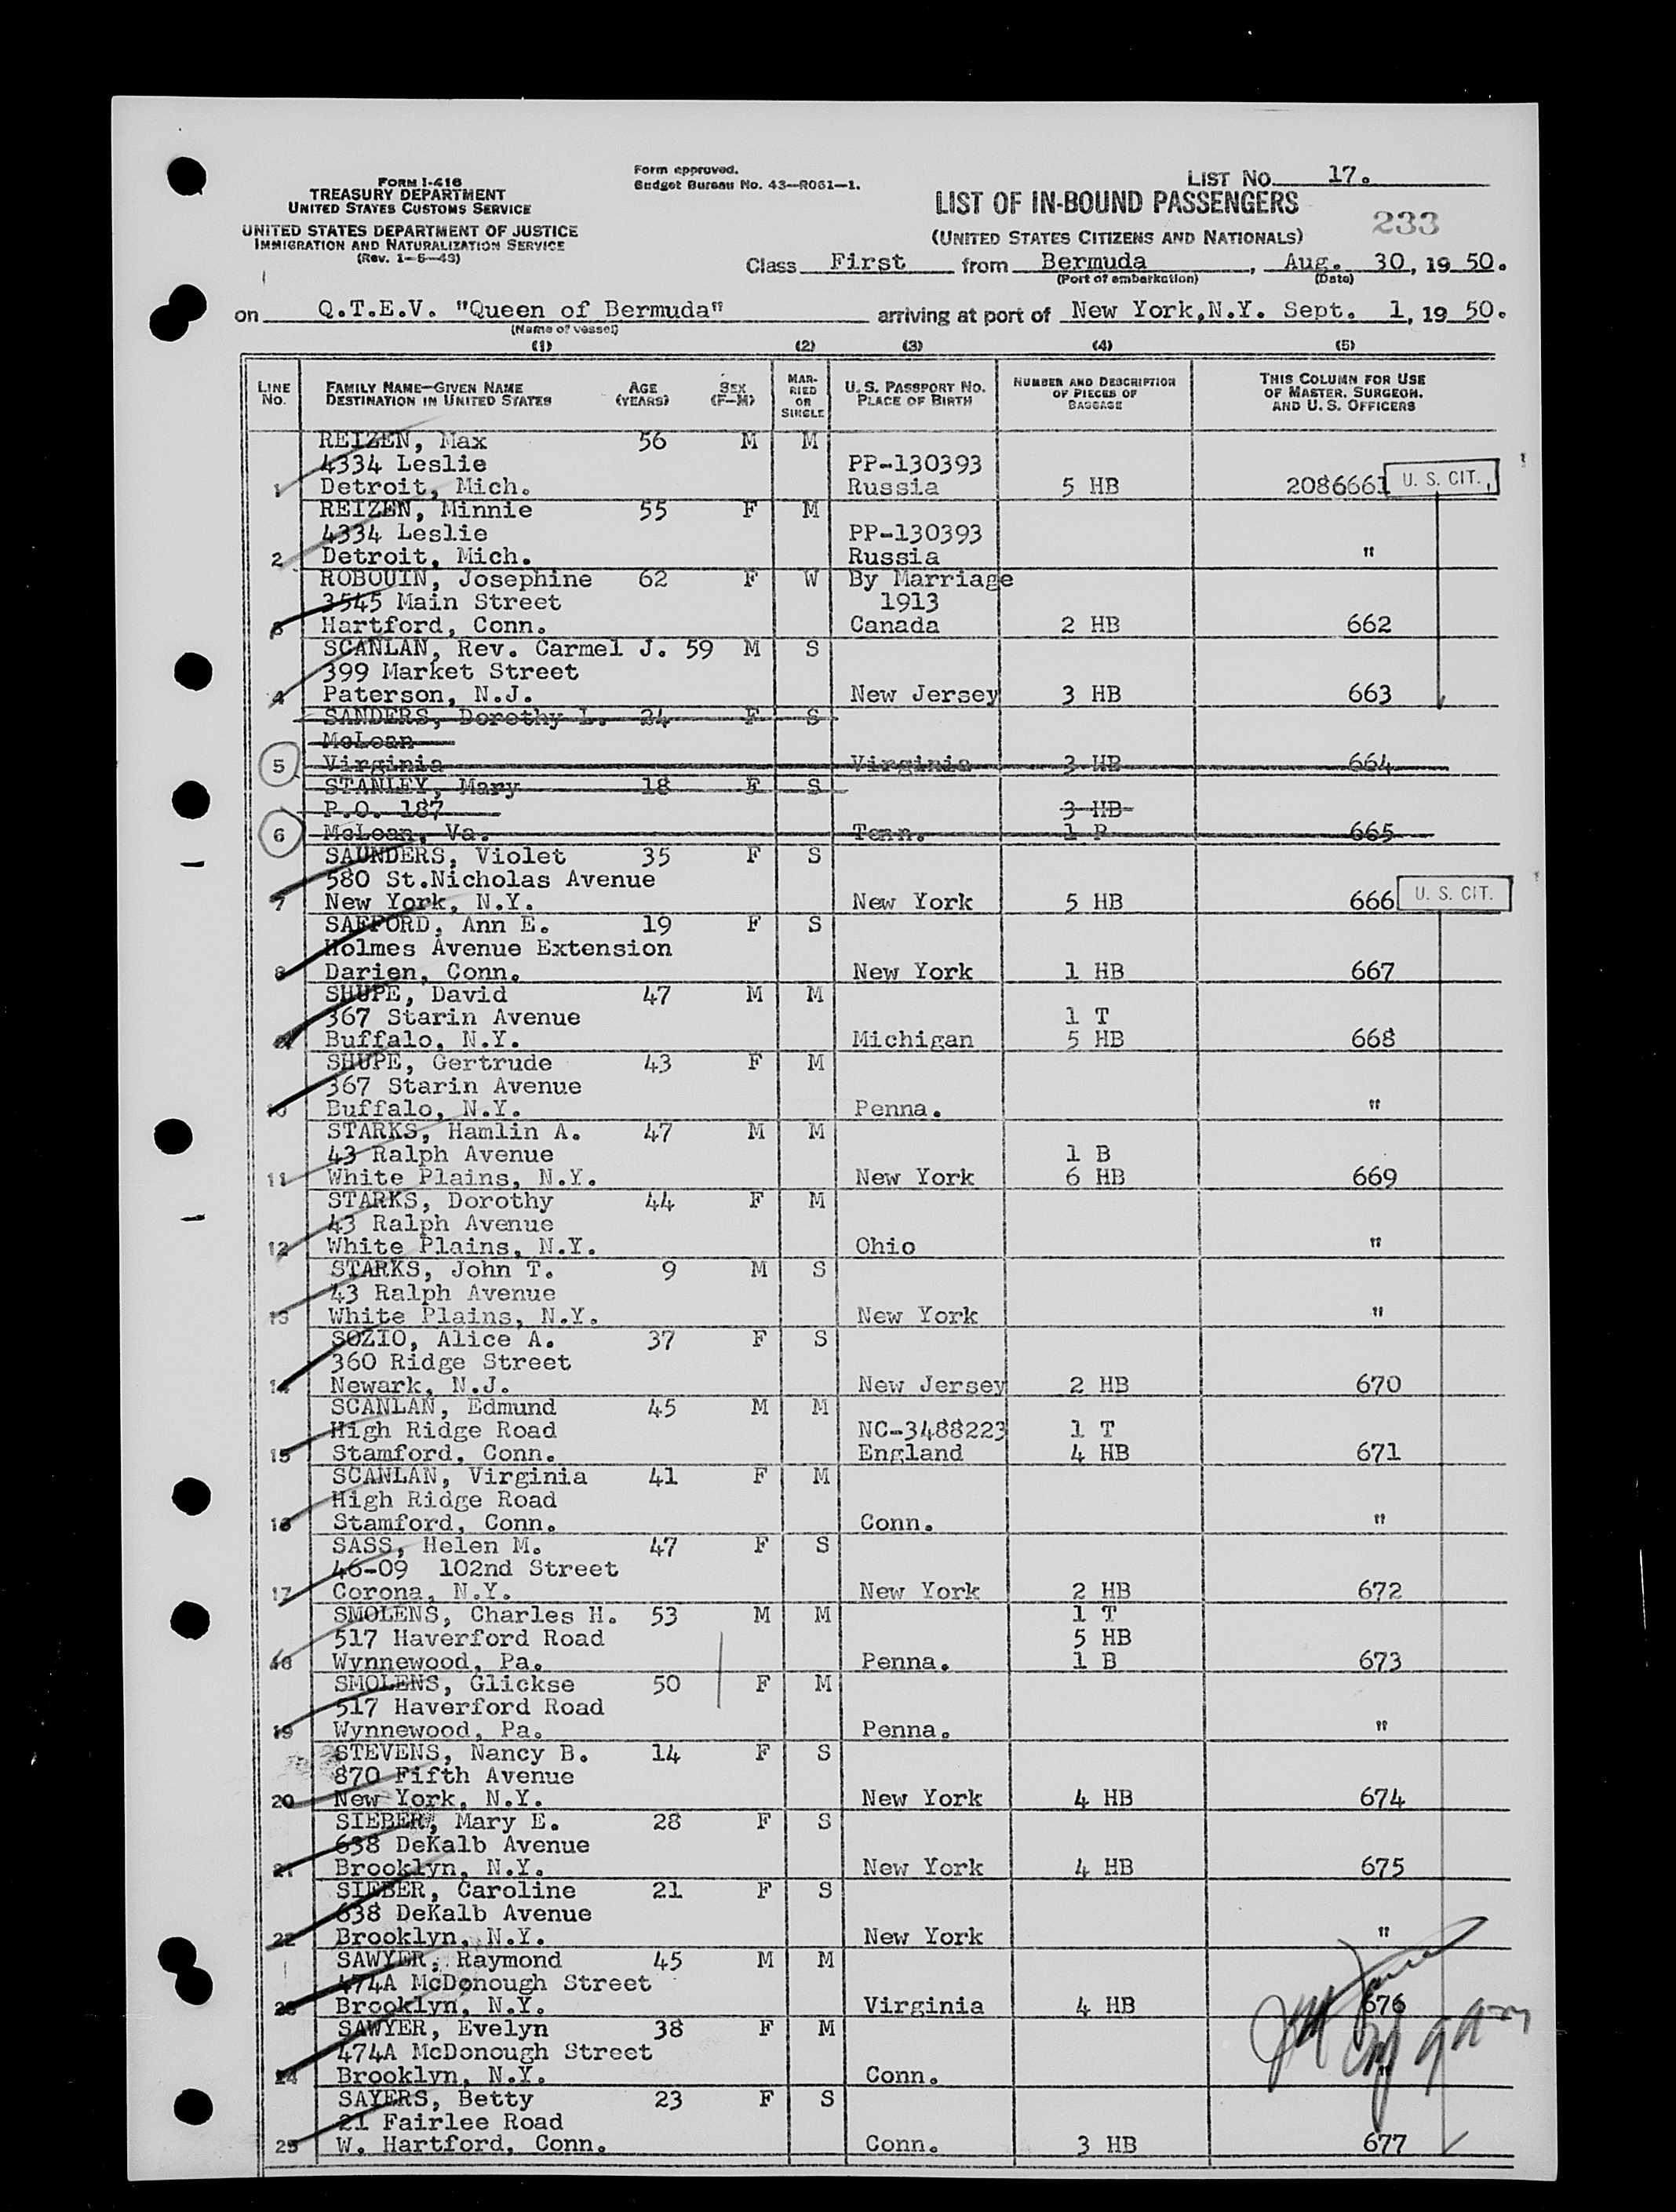 FORM I-416
TREASURY DEPARTMENT
UNITED STATES CUSTOMS SERVICE
UNITED STATES DEPARTMENT OF JUSTICE
IMMIGRATION AND NATURALIZATION SERVICE
(Rev. 1-5-49)
Form approved.
Budget Bureau No. 43-R061-1.
LIST No. 17.
LIST OF IN-BOUND PASSENGERS
(UNITED STATES CITIZENS AND NATIONALS)
233
Class First from Bermuda, Aug. 30, 19 50.
(Port of embarkation) (Date)
on Q.T.E.V. "Queen of Bermuda" arriving at port of New York, N.Y. Sept. 1, 19 50.
(Name of vessel)
(1) (2) (3) (4) (5)
LINE No.
FAMILY NAME—GIVEN NAME
DESTINATION IN UNITED STATES
AGE (YEARS)
SEX (F-M)
MARRIED OR SINGLE
U. S. PASSPORT NO.
PLACE OF BIRTH
NUMBER AND DESCRIPTION OF PIECES OF BAGGAGE
THIS COLUMN FOR USE OF MASTER, SURGEON, AND U. S. OFFICERS
REIZEN, Max 56 M M
4334 Leslie PP-130393
1 Detroit, Mich. Russia 5 HB 2086661 U. S. CIT.
REIZEN, Minnie 55 F M
4334 Leslie PP-130393
2 Detroit, Mich. Russia "
ROBOUIN, Josephine 62 F W By Marriage
3545 Main Street 1913
3 Hartford, Conn. Canada 2 HB 662
SCANLAN, Rev. Carmel J. 59 M S
399 Market Street
4 Paterson, N.J. New Jersey 3 HB 663
SANDERS, Dorothy L. 24 F S
McLean
5 Virginia Virginia 3 HB 664
STANLEY, Mary 18 F S
P.O. 187 3 HB
6 McLean, Va. Tenn. 1 P 665
SAUNDERS, Violet 35 F S
580 St.Nicholas Avenue
7 New York, N.Y. New York 5 HB 666 U. S. CIT.
SAFFORD, Ann E. 19 F S
Holmes Avenue Extension
8 Darien, Conn. New York 1 HB 667
SHUPE, David 47 M M
367 Starin Avenue 1 T
9 Buffalo, N.Y. Michigan 5 HB 668
SHUPE, Gertrude 43 F M
367 Starin Avenue
10 Buffalo, N.Y. Penna. "
STARKS, Hamlin A. 47 M M
43 Ralph Avenue 1 B
11 White Plains, N.Y. New York 6 HB 669
STARKS, Dorothy 44 F M
43 Ralph Avenue
12 White Plains, N.Y. Ohio "
STARKS, John T. 9 M S
43 Ralph Avenue
13 White Plains, N.Y. New York "
SOZIO, Alice A. 37 F S
360 Ridge Street
14 Newark, N.J. New Jersey 2 HB 670
SCANLAN, Edmund 45 M M
High Ridge Road NC-3488223 1 T
15 Stamford, Conn. England 4 HB 671
SCANLAN, Virginia 41 F M
High Ridge Road
16 Stamford, Conn. Conn. "
SASS, Helen M. 47 F S
46-09 102nd Street
17 Corona, N.Y. New York 2 HB 672
SMOLENS, Charles H. 53 M M 1 T
517 Haverford Road 5 HB
18 Wynnewood, Pa. Penna. 1 B 673
SMOLENS, Glickse 50 F M
517 Haverford Road
19 Wynnewood, Pa. Penna. "
STEVENS, Nancy B. 14 F S
870 Fifth Avenue
20 New York, N.Y. New York 4 HB 674
SIEBER, Mary E. 28 F S
638 DeKalb Avenue
21 Brooklyn, N.Y. New York 4 HB 675
SIEBER, Caroline 21 F S
638 DeKalb Avenue
22 Brooklyn, N.Y. New York "
SAWYER, Raymond 45 M M
474A McDonough Street
23 Brooklyn, N.Y. Virginia 4 HB 676
SAWYER, Evelyn 38 F M
474A McDonough Street
24 Brooklyn, N.Y. Conn. "
SAYERS, Betty 23 F S
21 Fairlee Road
25 W. Hartford, Conn. Conn. 3 HB 677